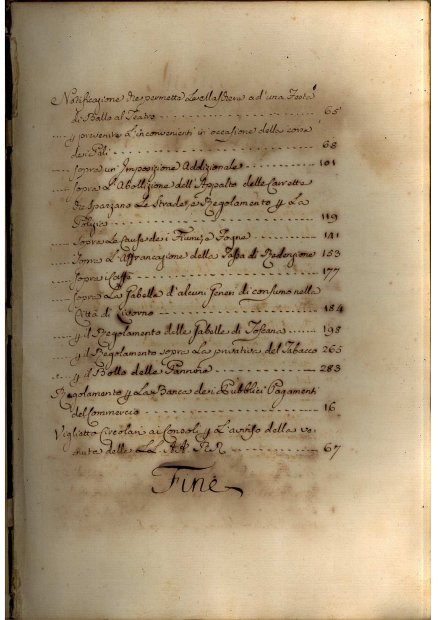 Notificazione che permette la Maschera ad una Festa
di Ballo al Teatro 65
p prevenire l'inconvenienti in occasione della corsa
dei Palj 68
sopra un'Imposizione Addizionale 101
sopra l'Abolizione dell'Appalto delle Carrette
che spazzano le Strade, e Regolamento p la
Pulizia 119
sopra le Cause dei Fiumi, e Fogne 141
sopra l'Affrancazione della Tassa di Redenzione 153
sopra Caffè 177
sopra la Gabella d'alcuni generi di consumo nella
Città di Livorno 184
p il Regolamento delle Gabelle di Toscana 198
p il Regolamento sopra la privativa del Tabacco 265
p il Bollo delle Pannine 283
Regolamento p la Banca dei Pubblici Pagamenti
del Commercio 16
Viglietto Circolari ai Consoli p l'avviso della ve-
nuta delle LL. AA. RR. 67
Fine